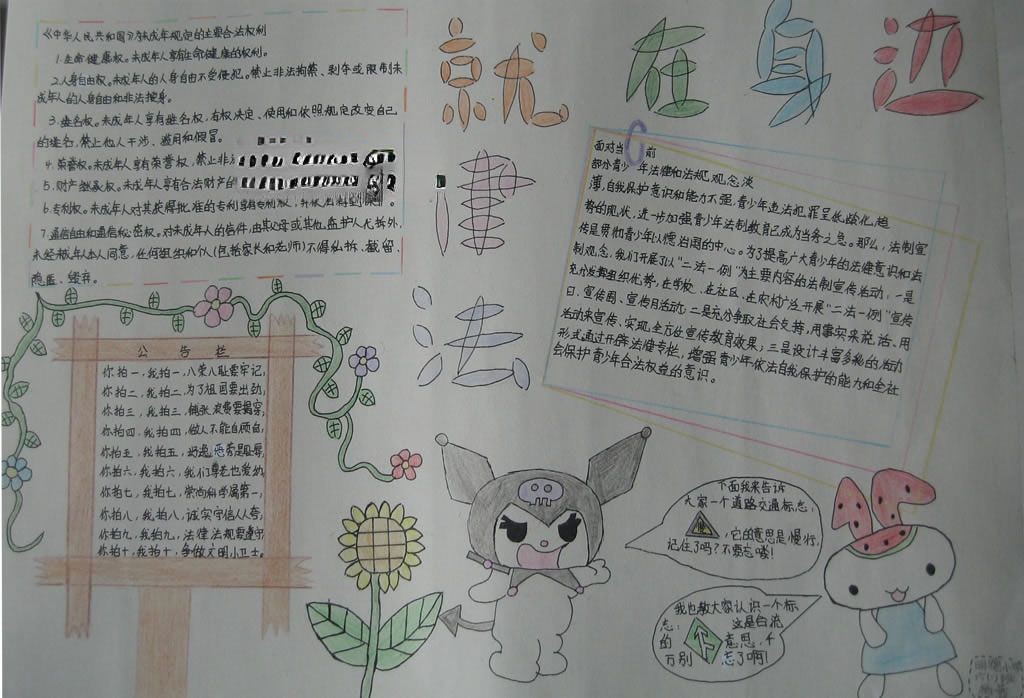 《中华人民共和国》为未成年规定的主要合法权利
1.生命健康权。未成年享有生命健康的权利。
2.人身自由权。未成年人的人身自由不受侵犯。禁止非法拘禁、剥夺或限制未
成年人的人身自由和非法搜身。
3.姓名权。未成年人享有姓名权，有权决定、使用和依照规定改变自己
的姓名，禁止他人干涉、滥用和假冒。
4.荣誉权。未成年人享有荣誉权，禁止非
5.财产继承权。未成年人享有合法财产的
6.专利权。未成年人对其获得批准的专利享有专利
7.通信自由和通信秘密权。对未成年人的信件，由其父母或其他监护人代拆外，
未经成年人本人同意，任何组织和个人(包括家长和老师)不得私拆、截留、
隐匿、毁弃。
就在身边
律
法
面对当前
部分青少年法律和法规观念淡
薄，自我保护意识和能力不强，青少年违法犯罪呈低龄化趋
势的现状，进一步加强青少年法制教育已成为当务之急。那么，法制宣
传是贯彻青少年以德治国的中心。为了提高广大青少年的法律意识和法
制观念，我们开展了以“二法一例”为主要内容的法制宣传活动：一是
充分发舞组织优势，在学校、在社区、在农村广泛开展“二法一例”宣传
日、宣传周、宣传月活动；二是充分争取社会支持，用事实来说话、用
活动来宣传、实现全方位宣传教育效果；三是设计丰富多彩的活动
形式通过开辟法律专栏，增强青少年依法自我保护的能力和全社
会保护青少年合法权益的意识。
公告栏
你拍一，我拍一，八荣八耻要牢记，
你拍二，我拍二，为了祖国要出劲；
你拍三，我拍三，铺张浪费要揭穿；
你拍四，我拍四，做人不能自顾自；
你拍五，我拍五，好逸恶劳是耻辱；
你拍六，我拍六，我们尊老也爱幼；
你拍七，我拍七，崇尚科学属第一；
你拍八，我拍八，诚实守信人人夸；
你拍九，我拍九，法律法规要遵守；
你拍十，我拍十，争做文明小卫士。
下面我来告诉
大家一个道路交通标志，
慢
，它的意思是慢行，
记住了吗？不要忘喽！
我也教大家认识一个标
志：这是合流
的意思，千
万别忘了啊！